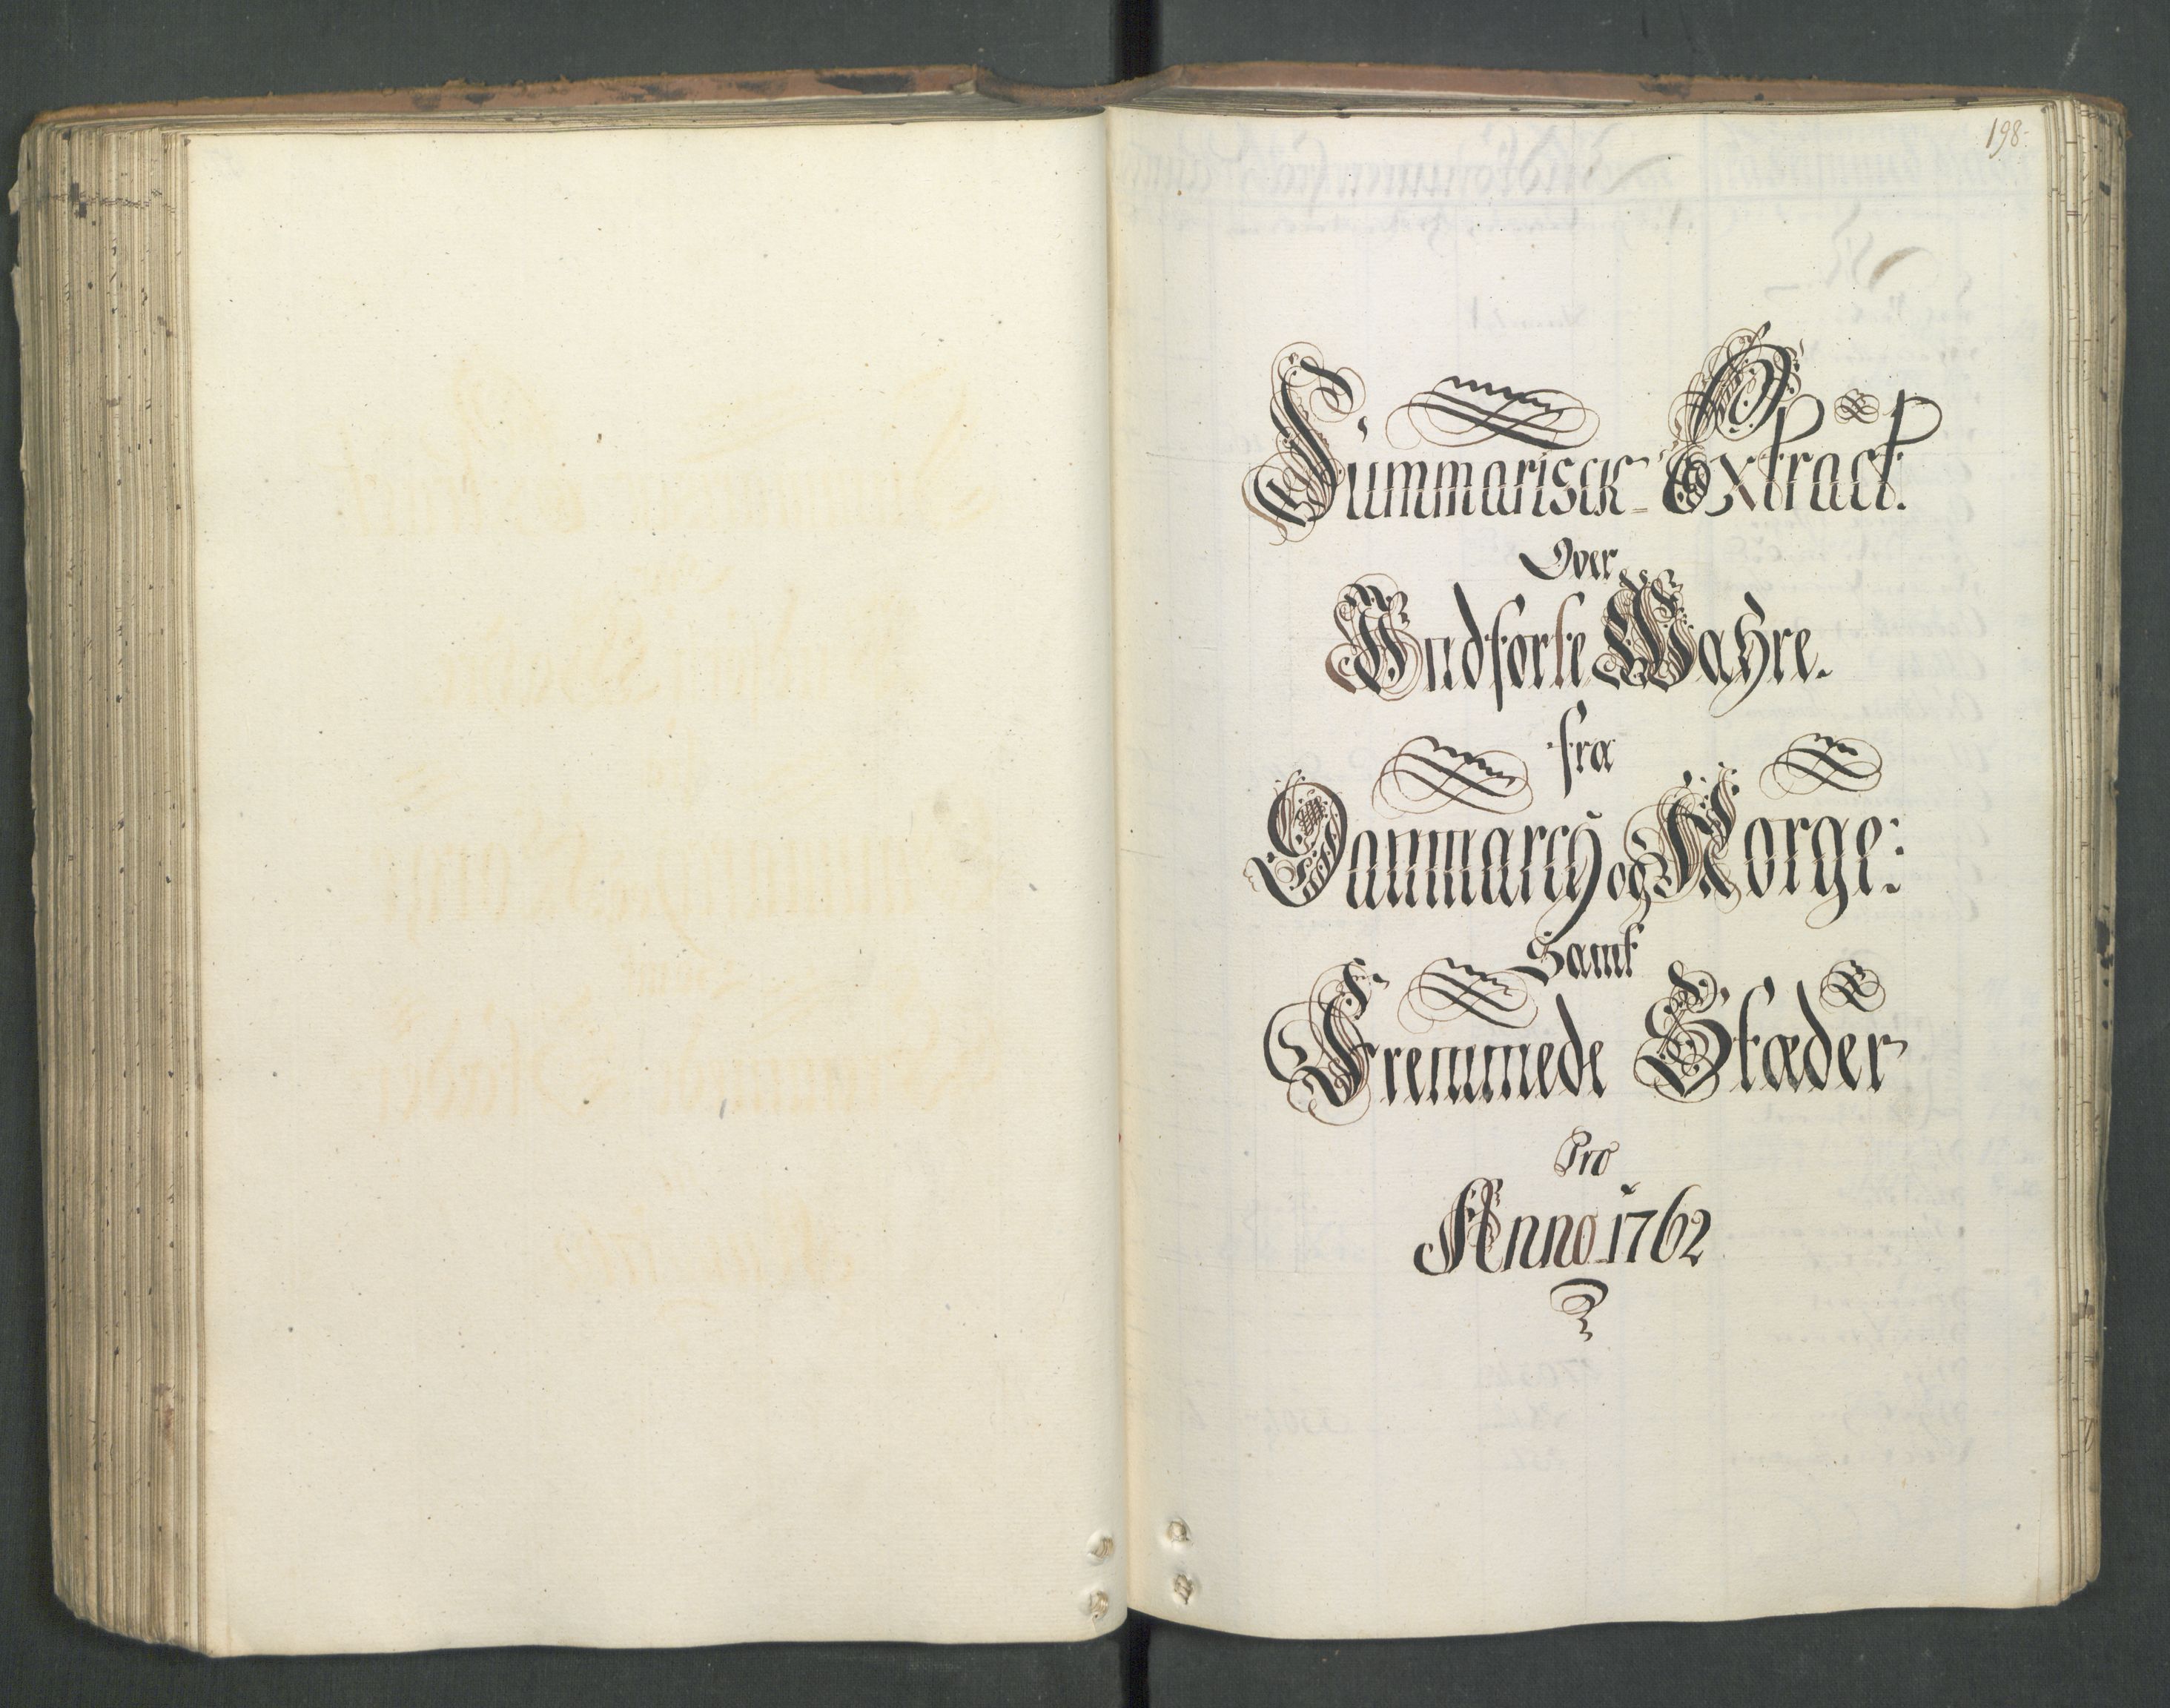 198.
Summarisck Extract.
Over
Indførte Wahre.
fra
Danmarch og Norge:
Samt
Fremmede Stæder
Pro
Anno 1762